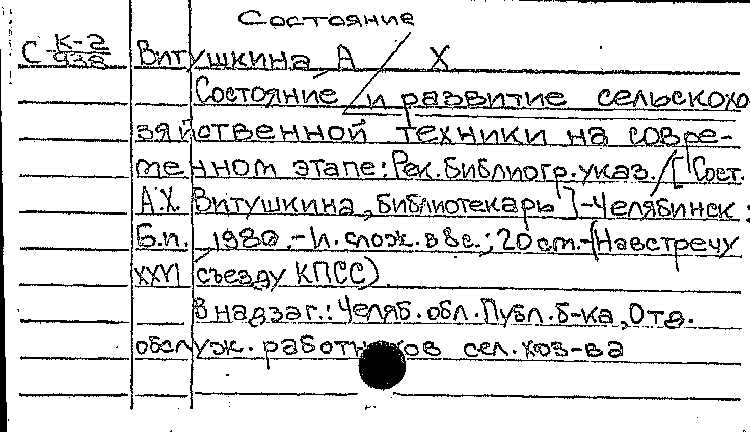 Состояние
С К-2/938 Витушкина А Х
Состояние и развитие сельскохо
зяйственной техники на совре-
менном этапе: Рек. библиогр. указ. / [Сост.
А.Х. Витушкина, библиотекарь] - Челябинск:
Б.и. , 1980. - 1 л. слож. в 8 с.; 20 cm. - (Навстречу
XXVI съезду КПСС)
В надзаг.: Челяб. обл. Публ. б-ка, Отд.
обслуж. работников сел. хоз-ва